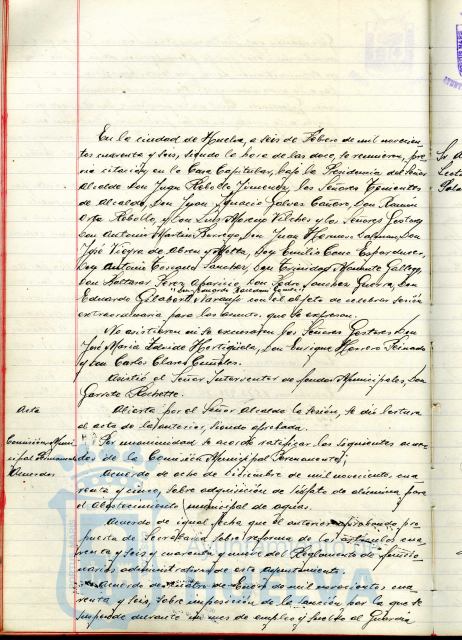 En la ciudad de Huelva, a seis de Febrero de mil novecien-
tos cuarenta y seis, siendo la hora de las doce, se reunieron, pre-
via citación, en la Casa Capitular, bajo la Presidencia del Señor
Alcalde Don Juan Rebollo Jimenez, los Señores Tenientes
de Alcalde, Don Juan Ignacio Galvez Cañero, Don Ramón
Rebollo, y Don Luis Moreno Vilches y los Señores Gestores
Don Antonio Martín Borrego, Don Juan Hermoso
José Viegra de Abreu y Motta, Don Emilio Cano
Don Antonio Sanchez, Don Trinidad
Don Baltasar Perez Aparicio, Don Pedro Sanchez Guerra, Don
Eduardo Gilabert Naranjo con el objeto de celebrar sesión
extraordinaria para los asuntos que se expresan.
No asistieron ni se excusaron los Señores Gestores Don
José María Hortigüela, Don Enrique Herrero
y Don Carlos
Asistió el Señor Interventor de fondos Municipales, Don
Garrote
Acta
Abierta por el Señor Alcalde la sesión, se dió lectura
al acta de la anterior, siendo aprobada.
Comisión Muni-
cipal Permanente
Acuerdos
Por unanimidad se acordó ratificar los siguientes acuer-
dos de la Comisión Municipal Permanente;
Acuerdo de ocho de de mil novecientos cua-
renta y cinco, sobre adquisición de sulfato de alúmina para
el Abastecimiento municipal de aguas.
Acuerdo de igual fecha que el anterior aprobando pro-
puesta de Secretaría sobre reforma de los artículos cua-
renta y seis y cuarenta y nueve del Reglamento de funcio-
narios administrativos de este Ayuntamiento.
Acuerdo de de Enero de mil novecientos cua-
renta y seis, sobre imposición de la sanción por la que se
suspende durante un mes de empleo y sueldo al Guardia
AYUNTAMIENTO DE
HUELVA